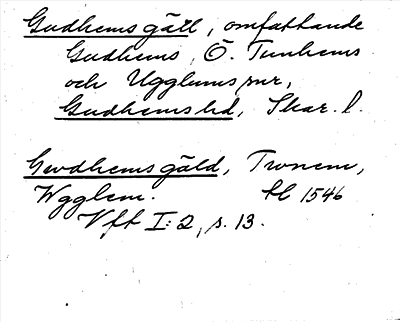 Gudhems gäll, omfattande
Gudhems, Ö. Tunhems
och Ugglums snr,
Gudhems hd, Skar. l.
Gwdhems gäld, Tronem,
Wgglem. 1546
Vft I:2, s. 13.